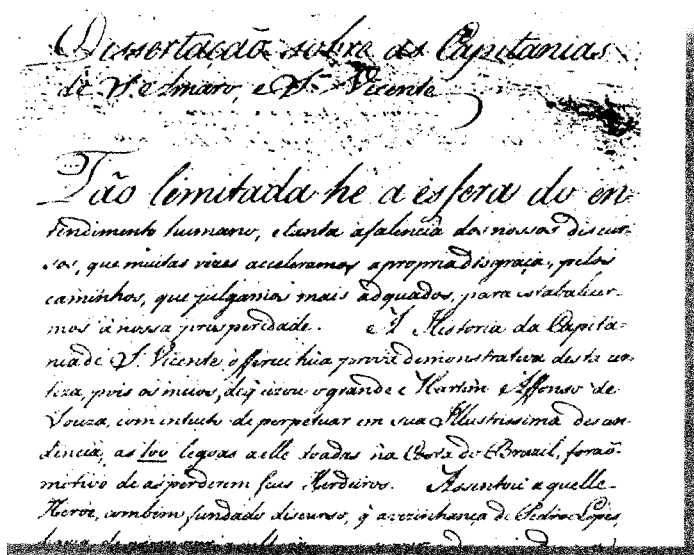 Dissertacaõ sobre as Capitanias
de S.to Amaro, e S.m Vicente
Taõ limitada he a esfera do en-
tendimento humano, e tanta a falencia dos nossos discur-
sos, que muitas vezes acceleramos a propria disgraça, pelos
caminhos, que julgamos mais adquados, para estabalicer-
mos a nossa prosperidade. A Historia da Capita-
nia de S. Vicente offerece hũa prova demonstrativa desta cer-
teza, pois os meios, de q̃ uzou o grande Martim Affonso de
Souza, com intuito de perpetuar em sua Illustrissima descen-
dencia, as 100 legoas a elle doadas na Costa do Brazil, foraõ
motivo de as perderem seus Herdeiros. Assentou aquelle
Heroe, com bem fundado discurso, q̃ a vezinhança de Pedro Lopes